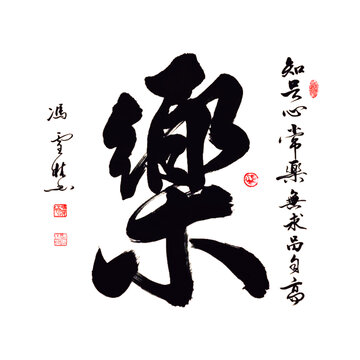 知足心常樂無求品自高
樂
馮雪